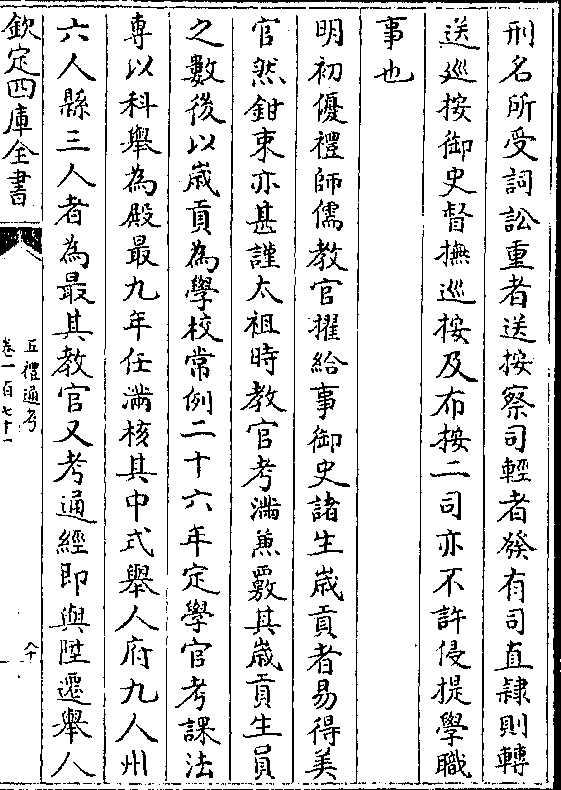 刑名所受詞訟重者送按察司輕者發有司直隸則轉
送廵按御史督撫廵按及布按二司亦不許侵提學職
事也
明初優禮師儒教官擢給事御史諸生嵗貢者易得美
官然鉗束亦甚謹太祖時教官考滿兼覈其嵗貢生員
之數後以嵗貢為學校常例二十六年定學官考課法
専以科舉為殿最九年任滿核其中式舉人府九人州
六人縣三人者為最其教官又考通經即與陞遷舉人
欽定四庫全書
五禮通考
卷一百七十一